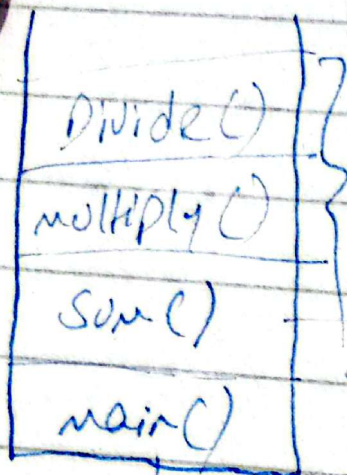 Divide()
multiply()
Sum()
main()